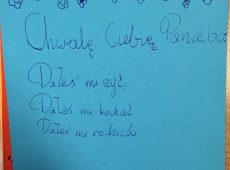 Chwalę Ciebię Panie, bo
Dałeś mi żyć,
Dałeś mi kochać
Dałeś mi rodziców